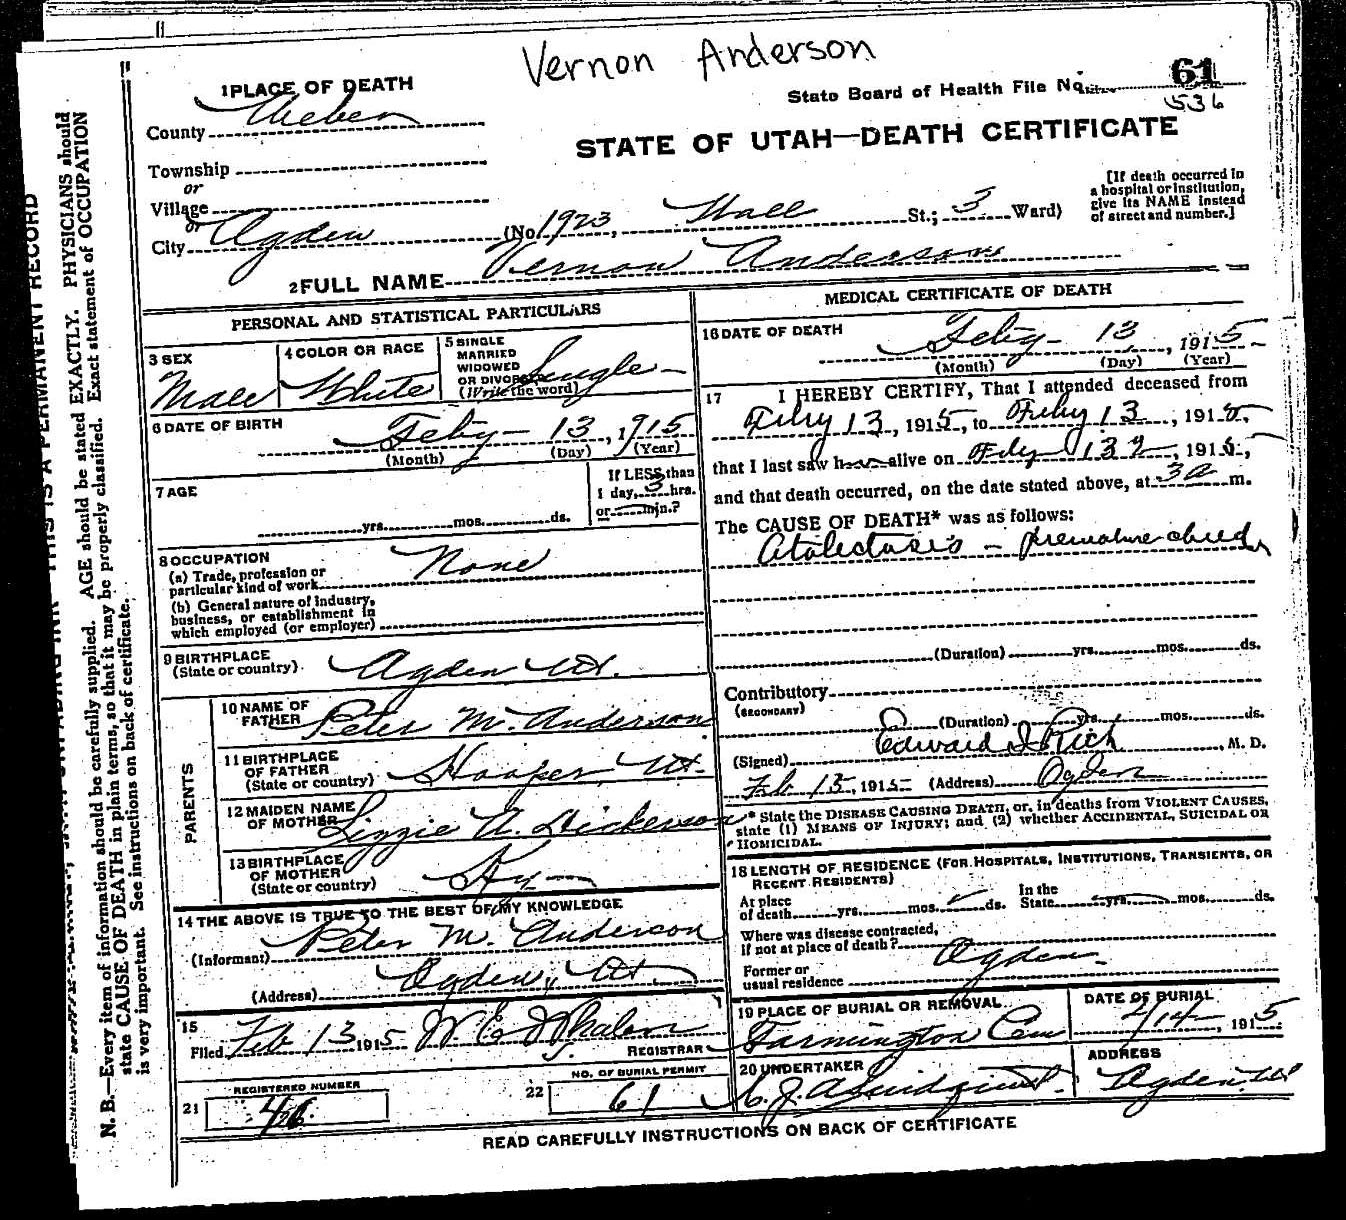 Vernon Anderson
1 PLACE OF DEATH
State Board of Health File No. 61
536
County Weber
STATE OF UTAH—DEATH CERTIFICATE
Township
or
Village
or
City Ogden (No 1923, Wall St.; 3 Ward)
[If death occurred in
a hospital or institution,
give its NAME instead
of street and number.]
2 FULL NAME Vernon Anderson
PERSONAL AND STATISTICAL PARTICULARS
3 SEX
Male
4 COLOR OR RACE
White
5 SINGLE
MARRIED
WIDOWED
OR DIVORCED
(Write the word)
Single
6 DATE OF BIRTH
Feby 13, 1915
(Month) (Day) (Year)
7 AGE
yrs. mos. ds.
If LESS than
1 day, 3 hrs.
or min.?
8 OCCUPATION
(a) Trade, profession or
particular kind of work
None
(b) General nature of industry,
business, or establishment in
which employed (or employer)
9 BIRTHPLACE
(State or country)
Ogden Ut.
PARENTS
10 NAME OF
FATHER
Peter M. Anderson
11 BIRTHPLACE
OF FATHER
(State or country)
Hooper, Ut.
12 MAIDEN NAME
OF MOTHER
Lizzie A. Dickerson
13 BIRTHPLACE
OF MOTHER
(State or country)
Ky
14 THE ABOVE IS TRUE TO THE BEST OF MY KNOWLEDGE
(Informant) Peter M. Anderson
(Address) Ogden, Ut.
15
Filed Feb 13 1915 W. E. Whalen
REGISTRAR
21
REGISTERED NUMBER
22
NO. OF BURIAL PERMIT
61
MEDICAL CERTIFICATE OF DEATH
16 DATE OF DEATH
Feby 13, 1915
(Month) (Day) (Year)
17 I HEREBY CERTIFY, That I attended deceased from
Feby 13, 1915, to Feby 13, 1915,
that I last saw h alive on Feby 13, 1915,
and that death occurred, on the date stated above, at 3 a m.
The CAUSE OF DEATH* was as follows:
Atalectasis - premature child
(Duration) yrs. mos. ds.
Contributory
(SECONDARY)
(Duration) yrs. mos. ds.
(Signed) Edward I Rich, M. D.
Feb 13, 1915 (Address) Ogden
* State the DISEASE CAUSING DEATH, or, in deaths from VIOLENT CAUSES,
state (1) MEANS OF INJURY; and (2) whether ACCIDENTAL, SUICIDAL OR
HOMICIDAL.
18 LENGTH OF RESIDENCE (FOR HOSPITALS, INSTITUTIONS, TRANSIENTS, OR
RECENT RESIDENTS)
At place
of death yrs. mos. ds.
In the
State yrs. mos. ds.
Where was disease contracted,
if not at place of death?
Former or
usual residence
Ogden
19 PLACE OF BURIAL OR REMOVAL
Farmington Cem
DATE OF BURIAL
2/14, 1915
20 UNDERTAKER
ADDRESS
Ogden Ut
READ CAREFULLY INSTRUCTIONS ON BACK OF CERTIFICATE
THIS IS A PERMANENT RECORD
N. B.—Every item of information should be carefully supplied. AGE should be stated EXACTLY. PHYSICIANS should
state CAUSE OF DEATH in plain terms, so that it may be properly classified. Exact statement of OCCUPATION
is very important. See instructions on back of certificate.